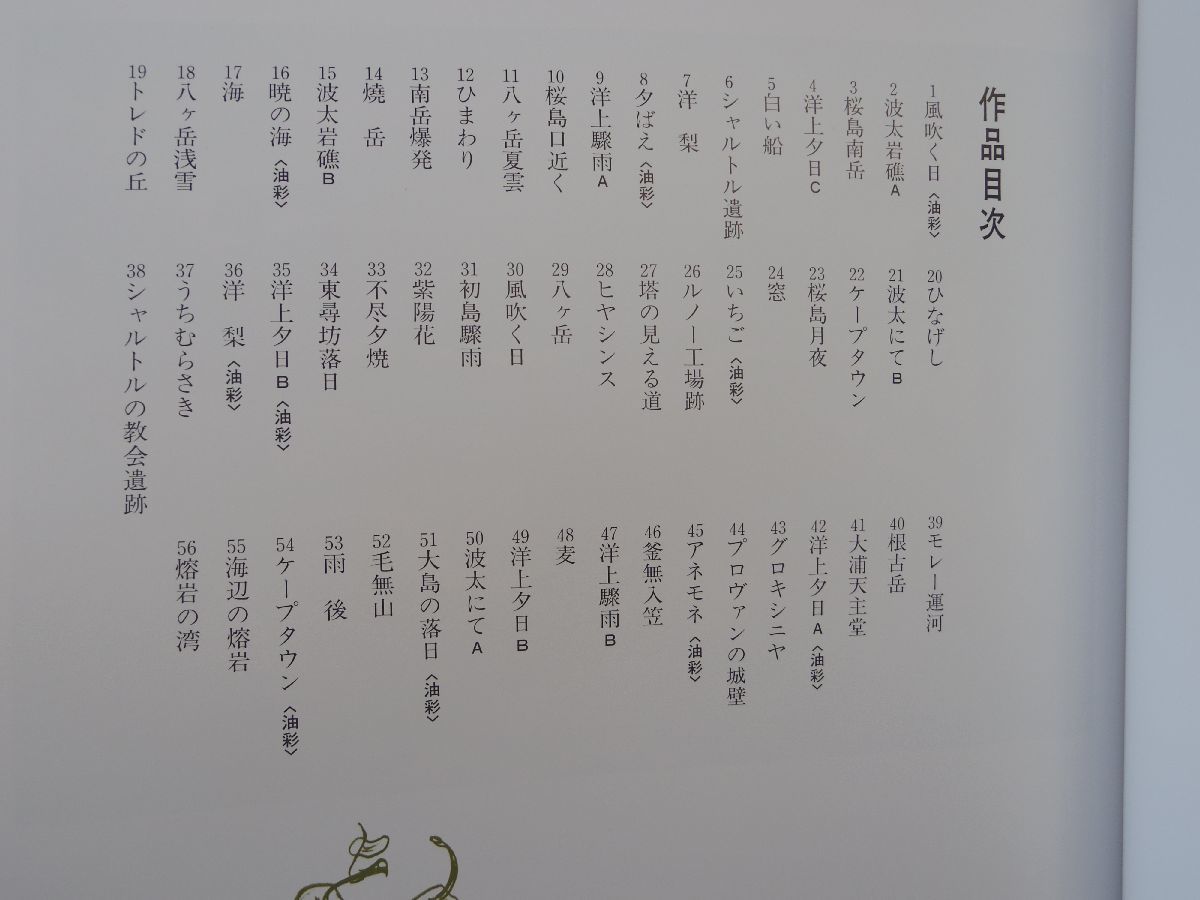 作品目次
1 風吹く日〈油彩〉
2 波太岩礁A
3 桜島南岳
4 洋上夕日C
5 白い船
6 シャルトル遺跡
7 洋　梨
8 夕ばえ〈油彩〉
9 洋上驟雨A
10 桜島口近く
11 八ヶ岳夏雲
12 ひまわり
13 南岳爆発
14 焼　岳
15 波太岩礁B
16 暁の海〈油彩〉
17 海
18 八ヶ岳浅雪
19 トレドの丘
20 ひなげし
21 波太にてB
22 ケープタウン
23 桜島月夜
24 窓
25 いちご〈油彩〉
26 ルノー工場跡
27 塔の見える道
28 ヒヤシンス
29 八ヶ岳
30 風吹く日
31 初島驟雨
32 紫陽花
33 不尽夕焼
34 東尋坊落日
35 洋上夕日B〈油彩〉
36 洋　梨〈油彩〉
37 うちむらさき
38 シャルトルの教会遺跡
39 モレー運河
40 根古岳
41 大浦天主堂
42 洋上夕日A〈油彩〉
43 グロキシニヤ
44 プロヴァンの城壁
45 アネモネ〈油彩〉
46 釜無入笠
47 洋上驟雨B
48 麦
49 洋上夕日B
50 波太にてA
51 大島の落日〈油彩〉
52 毛無山
53 雨　後
54 ケープタウン〈油彩〉
55 海辺の熔岩
56 熔岩の湾